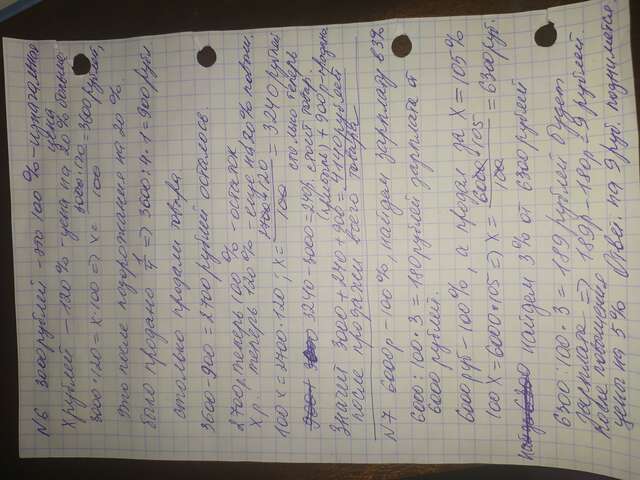 N6 3000 рублей - это 100 % - изначальная цена
X рублей - 120 % - цена на 20 % больше
3000 · 120 = x · 100 => x = 3000 · 120 / 100 = 3600 рублей,
это после подорожания на 20 %.
было продано 1/4 => 3600 : 4 · 1 = 900 рубл
столько продали товара
3600 - 900 = 2700 рублей осталось.
2700р теперь 100 % - остаток
X р. теперь 120 % - еще на 20 % повыш.
100 x = 2700 · 120 ; x = 2700 · 120 / 100 = 3240 рублей
3240 - 3000 = 240р. стоит товар
столько теперь
Значит 3000 + 240 + 900 = 4140 рублей
после продажи всего товара
N7 6000р - 100 %, найдем зарплату в 3%
6000 : 100 · 3 = 180 рублей зарплата от
6000 рублей.
6000 руб - 100 %, а продал за X = 105 %
100 X = 6000 · 105 => X = 6000 · 105 / 100 = 6300 руб.
найдем 3 % от 6300 рублей
6300 : 100 · 3 = 189 рублей будет
зарплата => 189р - 180р = 9 рублей
повышению
цены на 5 % Ответ. на 9 руб поднимется